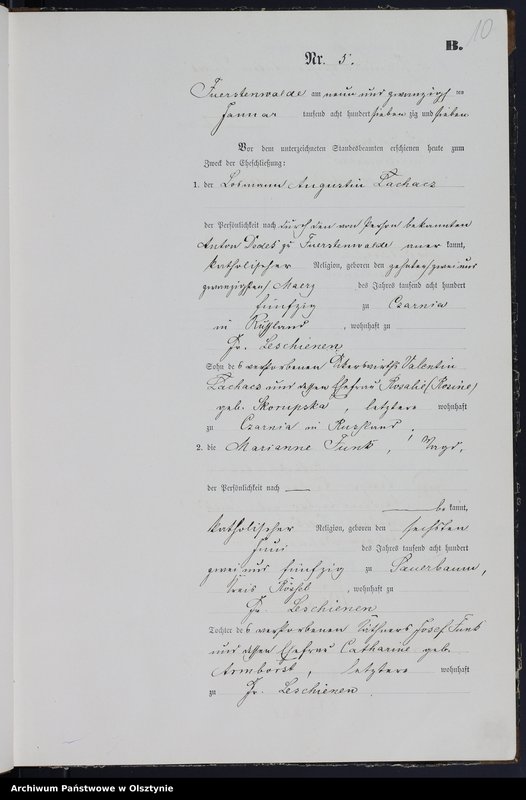 10
B.
Nr. 5.
Fuerstenwalde am neun und zwanzigsten
Januar tausend acht hundert sieben zig und sieben
Vor dem unterzeichneten Standesbeamten erschienen heute zum
Zweck der Eheschließung:
1. der Losmann Augustin Lachacz
der Persönlichkeit nach durch den von Person bekannten
Anton Dodes zu Fuerstenwalde aner kannt,
katholischer Religion, geboren den zwei und
zwanzigsten Maerz des Jahres tausend acht hundert
fünfzig zu Czarnia
in Rußland, wohnhaft zu
Gr. Leschienen
Sohn des verstorbenen Ackerwirths Valentin
Lachacz und dessen Ehefrau Rosalie (Rosine)
geb. Skorupska, letztere wohnhaft
zu Czarnia in Russland,
2. die Marianne Funk,
der Persönlichkeit nach —
— be kannt,
katholischer Religion, geboren den sechsten
Juni des Jahres tausend acht hundert
zwei und fünfzig zu Sauerbaum,
Kreis Rössel, wohnhaft zu
Gr. Leschienen
Tochter des verstorbenen Käthners Josef Funk
und dessen Ehefrau Catharine geb.
Armborst, letztere wohnhaft
zu Gr. Leschienen.
Archiwum Państwowe w Olsztynie